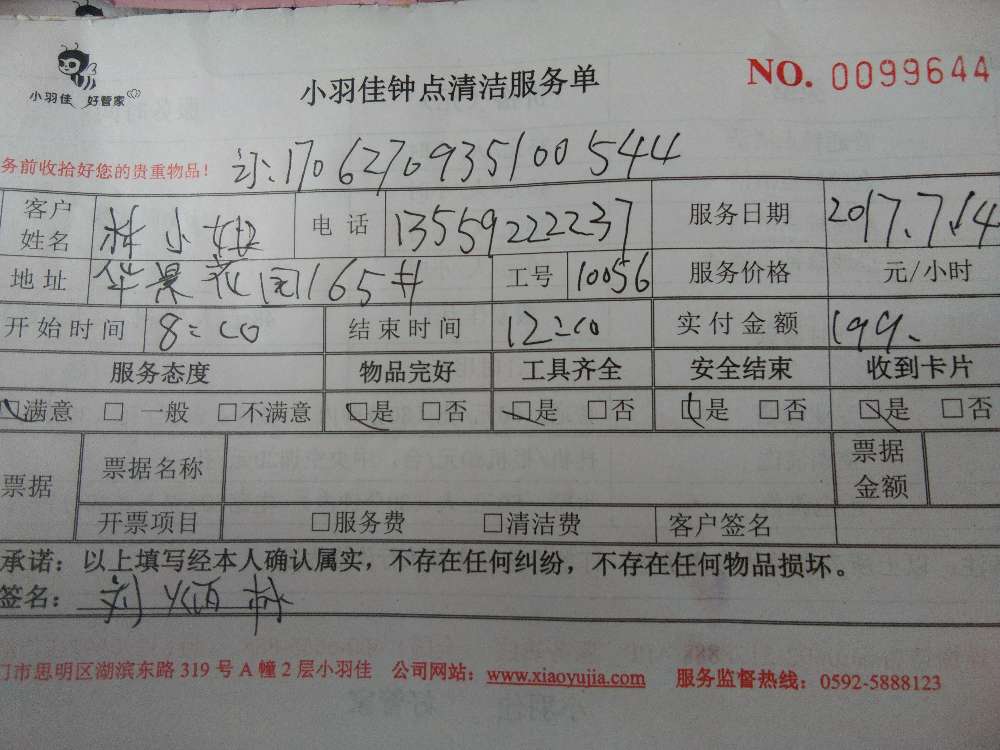 小羽佳 好管家
小羽佳钟点清洁服务单
NO. 0099644
务前收拾好您的贵重物品!
1706270935100544
客户姓名 林小姐 电话 13559222237 服务日期 2017.7.14
地址 苹果花园165# 工号 10056 服务价格 元/小时
开始时间 8:00 结束时间 12:00 实付金额 199.
服务态度 物品完好 工具齐全 安全结束 收到卡片
☑满意 □一般 □不满意 ☑是 □否 ☑是 □否 ☑是 □否 ☑是 □否
票据 票据名称 票据金额
开票项目 □服务费 □清洁费 客户签名
承诺：以上填写经本人确认属实，不存在任何纠纷，不存在任何物品损坏。
签名：
门市思明区湖滨东路 319 号 A 幢 2 层小羽佳 公司网站：www.xiaoyujia.com 服务监督热线：0592-5888123